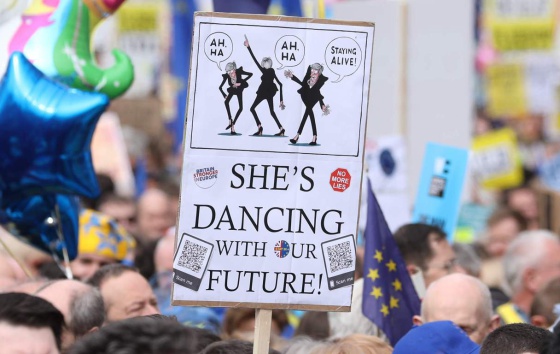 AH, HA
AH, HA
STAYING ALIVE!
BRITAIN
STRONGER
IN EUROPE
NO MORE LIES
SHE'S
DANCING
WITH OUR
FUTURE!
Scan me
Scan me